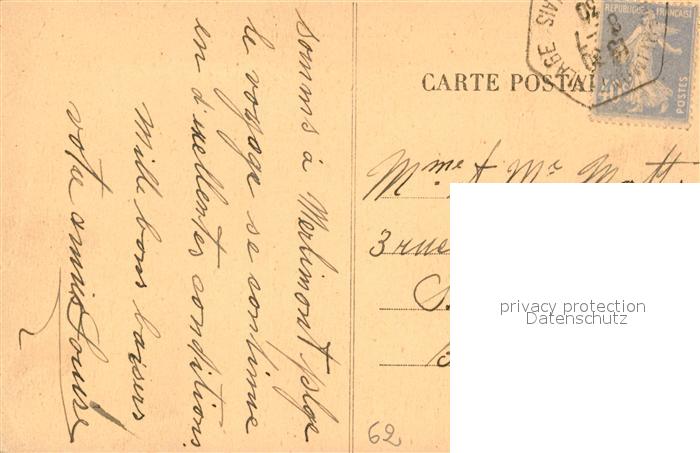 sommes à Merlimont plge
le voyage se continue
en d'exellentes conditions.
Mille bons baisers
votre amie Louise
CARTE POSTALE
REPUBLIQUE FRANÇAISE
POSTES
Mme & Mr
3 rue
62
privacy protection
Datenschutz